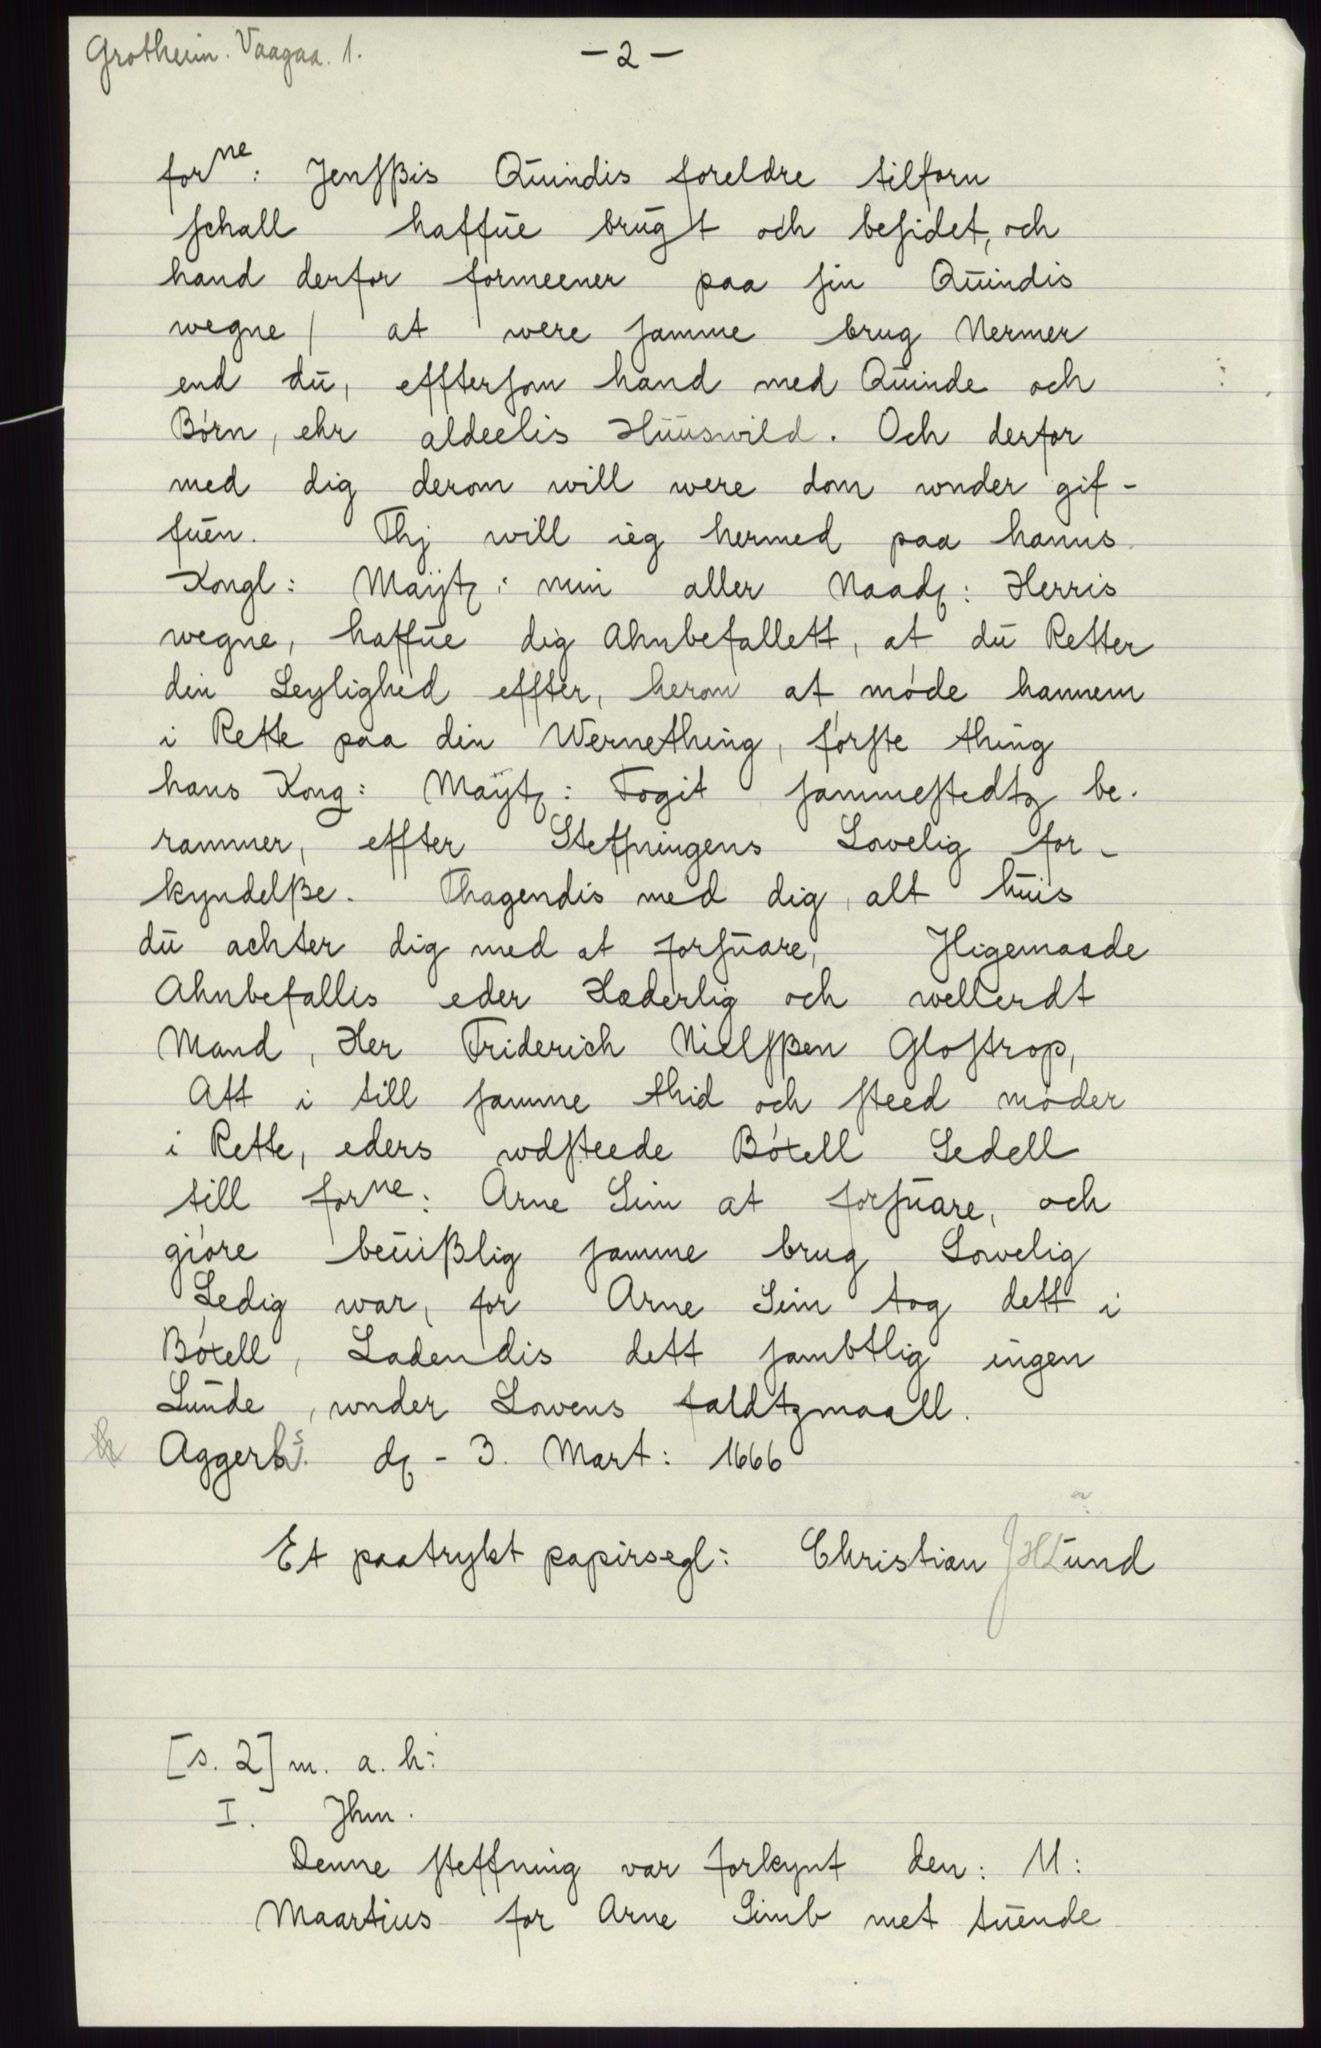 Grotheim. Vaagaa. 1.
- 2 -
for<sup>ne</sup>: Jenſßis Qŭindis foreldre tilforn
ſchall haffŭe brŭgt och beſidet, och
hand derfor formeener paa ſin Qŭindis
wegne / at were ſamme brug Nermer
end dŭ, effterſom hand med Qŭinde och
Børn, ehr aldeelis Hŭŭswild. Och derfor
med dig derom will were dom wnder gif-
fŭen. Thj will ieg hermed paa hanns
Kongl: Maÿtꝭ: min aller Naadꝭ: Herris
wegne, haffŭe dig Ahnbefallett, at dŭ Retter
din Leylighed effter, herom at møde hannem
i Rette paa din Wernething, førſte thing
hans Kong: Maÿtꝭ: Fogit ſammeſtedtz be-
rammer, effter Steffningens Lovelig for-
kyndelße. Thagendis med dig, alt hŭis
dŭ achter dig med at forſŭare, Jligemaade
Ahnbefallis eder Hæderlig och wellerdt
Mand, Her Friderich Nielſßen Gloſtrop,
Att i till ſamme thid och ſteed møder
i Rette, eders wdſteede Bøxell Sedell
till for<sup>ne</sup>: Arne Sim at forſŭare, och
giøre beŭißlig ſamme brug Lowelig
Ledig war, for Arne Sim tog dett i
Bøxell, Ladendis dett ſambtlig ingen
Lŭnde, wnder Lowens faldtzmaall.
Aggerhs. dꝭ - 3. Mart: 1666
Et paatrykt papirsegl: Christian JHLŭnd
[s. 2] m. a. h:
I. Jhm.
Denne ſteffning var forkynt den: 11:
Maartius for Arne Simb met tŭende